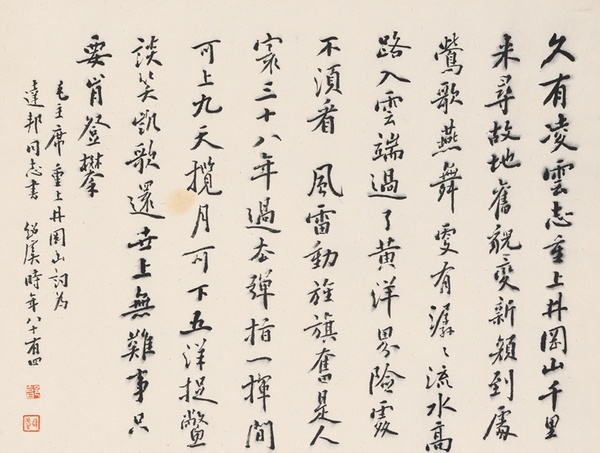 久有凌雲志重上井岡山千里
来尋故地舊貌變新顏到處
鶯歌燕舞更有潺々流水高
路入雲端過了黄洋界險處
不須看 風雷動旌旗奮是人
寰三十八年過去彈指一揮間
可上九天攬月可下五洋捉鱉
談笑凱歌還世上無難事只
要肯登攀
毛主席重上井岡山詞为
達邦同志書 紹虞時年八十有四